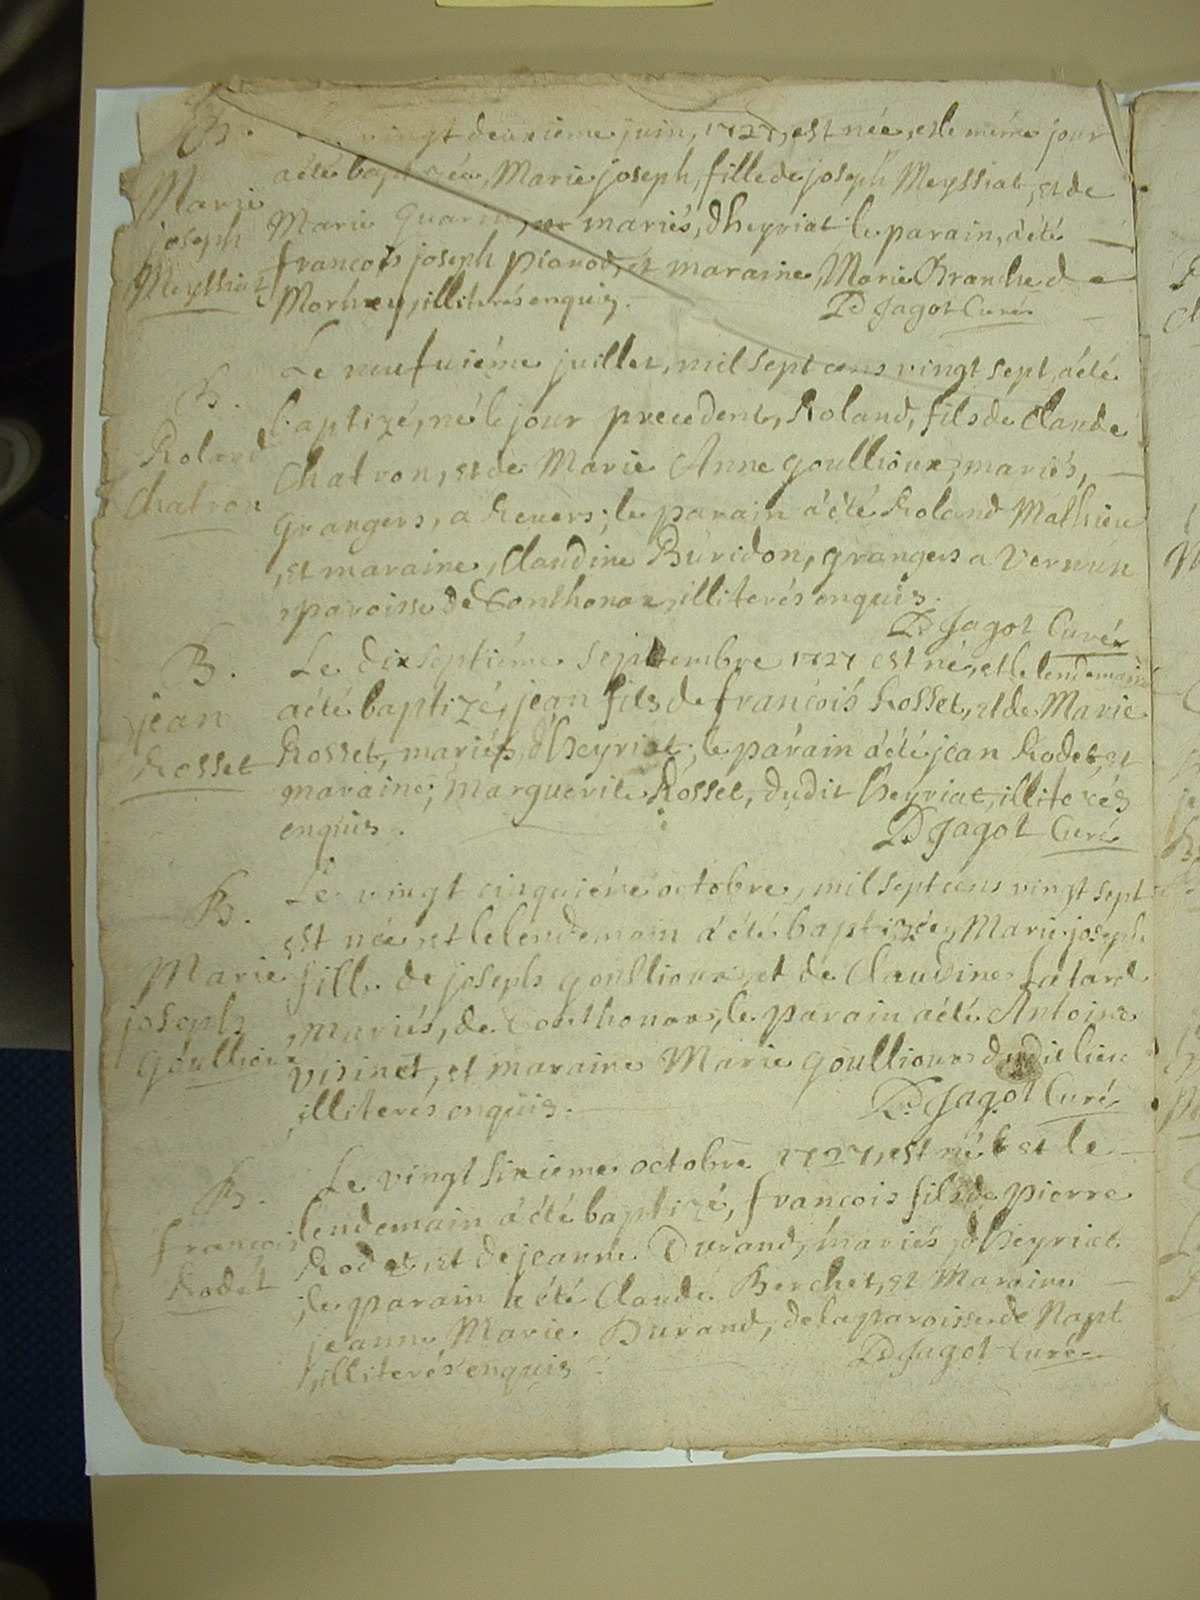 B.
Marie
joseph
Meyssiat
vingt deuxieme juin, 1727, est née, et le même jour
a été baptizée, Marie joseph, fille de joseph Meyssiat, et de
Marie mariés, d'heyriat; le parain, a été
francois joseph et maraine, Marie
illiterés enquis.
D. Jagot Curé
B.
Roland
Chatron
Le neufuiéme juillet, mil sept cens vingt sept, a été
baptizé, né le jour precedent, Roland, fils de Claude
Chatron, et de Marie Anne goullioux, mariés,
grangers, a Reuers; le parain a été Roland Mathieu
, et maraine, Claudine Buridon, grangers a Vernun
, paroisse de Sonthonax, illiterés enquis.
D. Jagot Curé
B.
jean
Rosset
Le dixseptiéme septembre 1727 est né, et le lendemain
a été baptizé, jean fils de francois Rosset, et de Marie
Rosset, mariés, d'heyriat; le parain a été jean Rodet, et
maraine, Marguerite Rosset, dudit heyriat, illiterés
enquis.
D. Jagot Curé
B.
Marie
joseph
Goullioux
Le vingt cinquiéme octobre, mil sept cens vingt sept
est née, et le lendemain a été baptizée, Marie joseph
fille de joseph goullioux, et de Claudine
, mariés, de Sonthonax, le parain a été Antoine
Visinet, et maraine Marie goullioux dudit lieu
, illiterés enquis.
D. Jagot Curé
B.
francois
Rodet
Le vingt sixieme octobre 1727, est né et le
lendemain a été baptizé, francois fils de pierre
Rodet, et de jeanne Durand, mariés, d'heyriat
, le parain a été Claude Berchet, et Maraine
jeanne Marie Durand, de la paroisse de Napt
, illiterés enquis
D. Jagot Curé